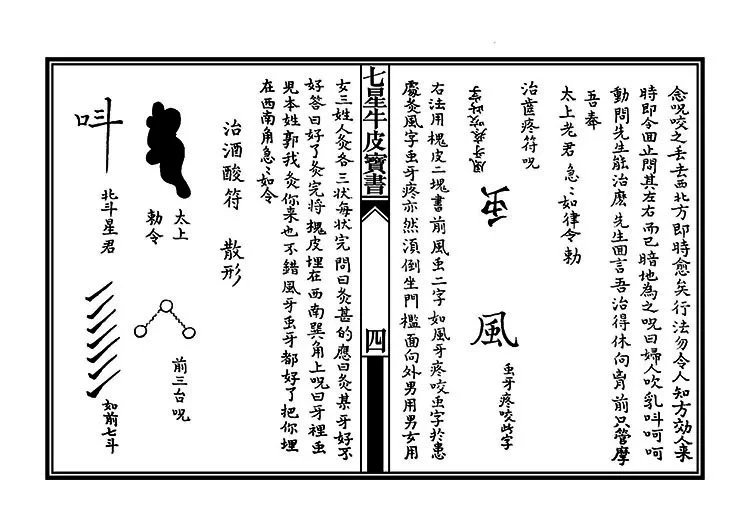 念呪咬之丢去西北方即時愈矣行法勿令人知方効人來
時即令面止問其左右而已暗地為之呪曰婦人吹乳呌呵呵
動問先生能治麽先生囬言吾治得休向胷前只管摩
吾奉
太上老君急〻如律令勅
治茁疼符呪
風牙疼咬此字
虫
風
虫牙疼咬此字
右法用槐皮二塊書前風虫二字如風牙疼咬虫字於患
處灸風字虫牙疼亦然湏倒坐門檻面向外男用男女用
七星牛皮寳書
四
女三姓人灸各三状每状完問曰灸甚的應曰灸某牙好不
好答曰好了灸完將槐皮埋在西南巽角上呪曰牙裡虫
児本姓郭我灸你来也不錯風牙虫牙都好了把你埋
在西南角急〻如令
治酒酸符 散形
太上
勅令
前三台呪
呌
北斗星君
如前七斗